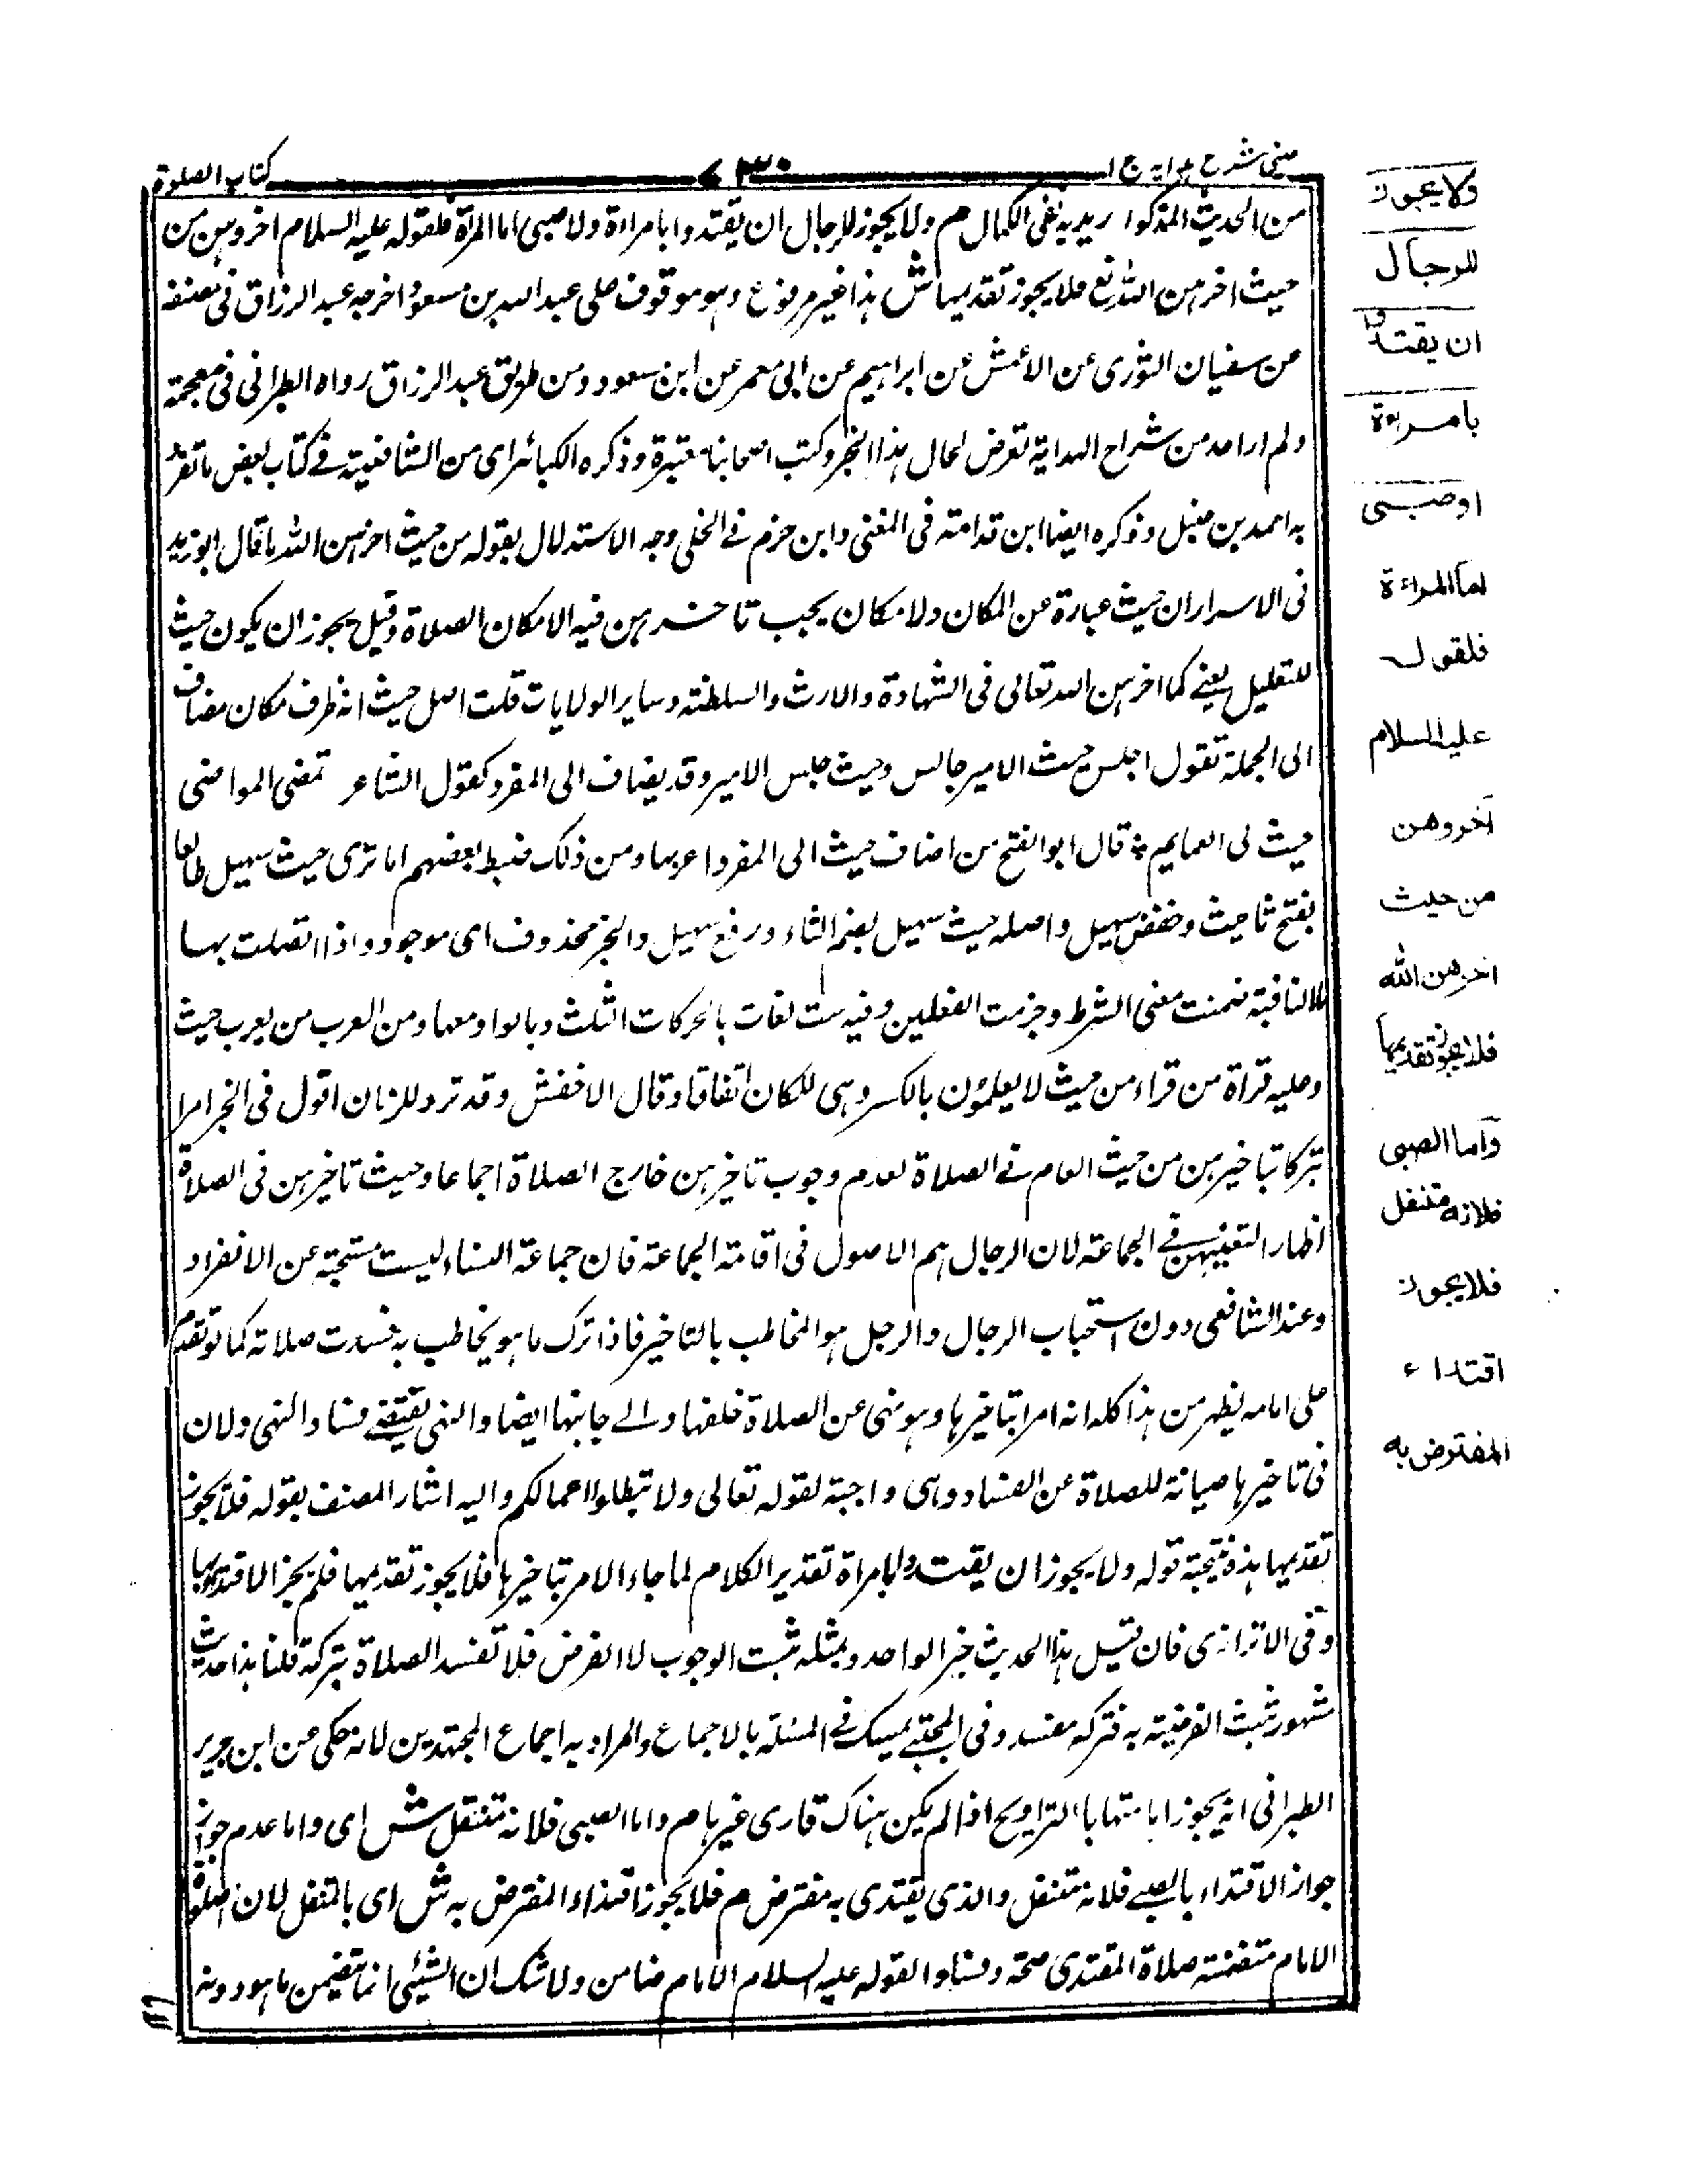 عینی شرح ہدایہ ج ا
٧٣٠
کتاب الصلوة
من الحديث المذكور يريد به نفى الكمال م ولا يجوز للرجال ان يقتدوا بامراءة ولا صبى اما المرأة فلقوله عليه السلام اخروهن من
حيث اخرهن الله تع فلا يجوز تقديمها ش هذا غير مرفوع وهو موقوف على عبد الله بن مسعود اخرجه عبد الرزاق فى مصنفه
عن سفيان الثورى عن الاعمش عن ابراهيم عن ابى معمر عن ابن مسعود ومن طريق عبد الرزاق رواه الطبرانى فى معجمة
ولم ار احد من شراح الهداية تعرض لحال هذا الخبر وكتب اصحابنا معتبرة وذكره الكيا الهراسى من الشافعية فے كتاب بعض ما تفرد
به احمد بن حنبل وذكره ايضا ابن قدامة فى المغنى وابن حزم فے المحلى وجه الاستدلال بقوله من حيث اخرهن الله ما قال ابو زيد
فى الاسرار ان حيث عبارة عن المكان ولا مكان يجب تاخرهن فيه الا مكان الصلاة وقيل يجوز ان يكون حيث
للتعليل يعنے كما اخرهن الله تعالى فى الشهادة والارث والسلطنة وساير الولايات قلت اصل حيث انه ظرف مكان مضاف
الى الجملة تقول اجلس حيث الامير جالس وحيث جلس الامير وقد يضاف الى المفرد كقول الشاعر تمضى المواضى
حيث لى العمايم ؞ قال ابو الفتح من اضاف حيث الى المفرد اعربها ومن ذلك ضبط بعضهم اما ترى حيث سهيل طالعا
بفتح ثا حيث وخفض سهيل واصله حيث سهيل بضم الثاء ورفع سهيل والخبر محذوف اى موجود واذا اتصلت بها
ما لا النافية ضمنت معنى الشرط وجزمت الفعلين وفيه ست لغات بالحركات الثلث وبالواو معها ومن العرب من يعرب حيث
وعليه قراة من قراء من حيث لا يعلمون بالكسر وهى للمكان اتفاقا وقال الاخفش وقد ترد للزمان اقول فى الخبر امرا
تبركا بتاخيرهن من حيث العام فے الصلاة لعدم وجوب تاخيرهن خارج الصلاة اجماعا وحيث تاخيرهن فى الصلاة
اظهار التغييبهن فے الجماعة لان الرجال هم الاصول فى اقامة الجماعة فان جماعة النساء ليست مستحبة عن الانفراد
وعند الشافعى دون استحباب الرجال والرجل هو المخاطب بالتاخير فاذا ترك ما هو يخاطب به فسدت صلاته كما لو تقدم
على امامه ليظهر من هذا كله انه امر بتاخيرها وهو نهى عن الصلاة خلفها والے جانبها ايضا والنهى يقتضے فساد النهى ولان
فى تاخيرها صيانة للصلاة عن الفساد وهى واجبة لقوله تعالى ولا تبطلوا اعمالكم واليه اشار المصنف بقوله فلا يجوز
تقديمها هذه نتيجة قوله ولا يجوز ان يقتدوا بامراة تقدير الكلام لما جاء الامر بتاخيرها فلا يجوز تقديمها فلم يجز الاقتداء بها
وفى الاترازى فان قيل هذا الحديث خبر الواحد وبمثله ثبت الوجوب لا الفرض فلا تفسد الصلاة بتركه قلنا هذا حديث
مشهور ثبت الفرضية به فتركه مفسد وفى المجتبے تمسك فے المسئلة بالاجماع والمراد به اجماع المجتهدين لانه حكى عن ابن جرير
الطبرانى انه يجوز امامتها با التراويح اذا لم يكن هناك قارى غيرها م واما الصبى فلانه متنفل ش اى واما عدم جواز
جواز الاقتداء بالصبے فلانه متنفل والذى يقتدى به مفترض م فلا يجوز اقتداء المفترض به ش اى بالمتنفل لان صلوة
الامام متضمنة صلاة المقتدى صحة وفسادا لقوله عليه السلام الامام ضامن ولا شك ان الشيئى انما يتضمن ما هو دونه
ولا يجوز
للرجال
ان يقتدوا
بامراءة
اوصبى
اما المراءة
فلقول
عليه السلام
آخروهن
من حيث
اخرهن الله
فلا يجوز تقديمها
واما الصبى
فلانه متنفل
فلا يجوز
اقتداء
المفترض به